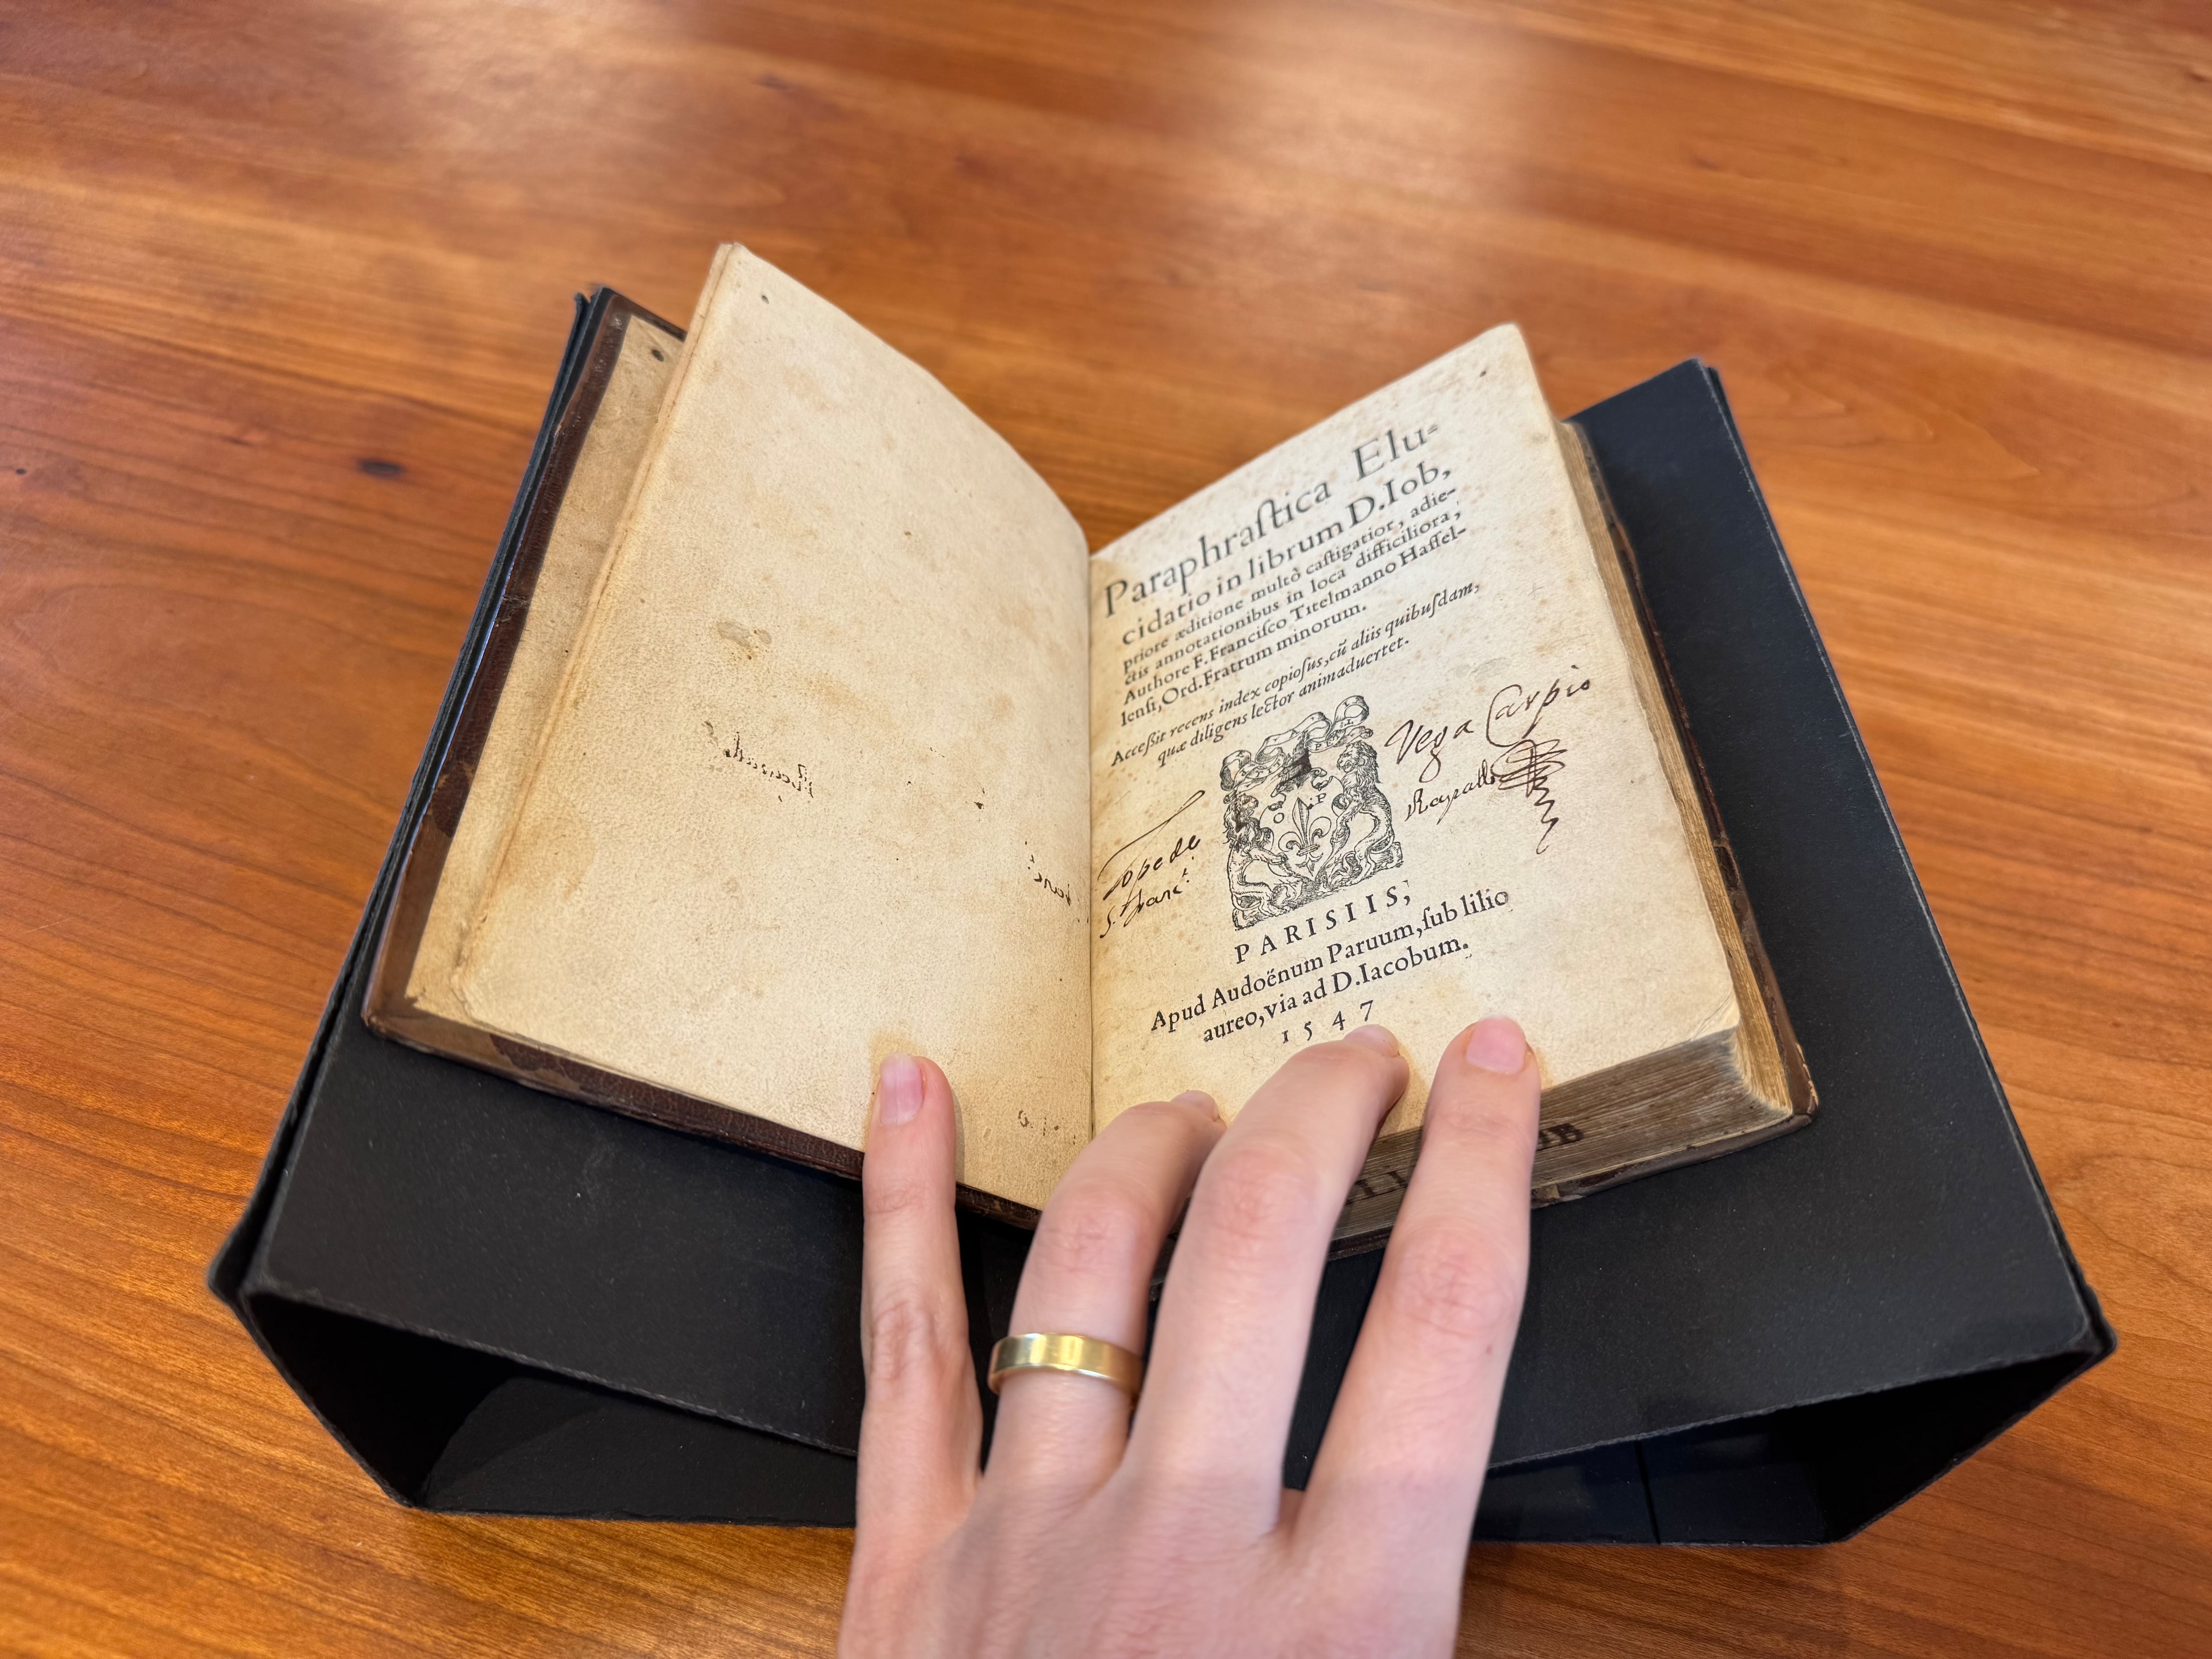 Paraphraſtica Elu-
cidatio in librum D.Iob,
priore æditione multò caſtigatior, adie-
ctis annotationibus in loca difficiliora,
Authore F.Franciſco Titelmanno Haſſel-
lenſi,Ord.Fratrum minorum.
Acceßit recens index copioſus,cũ aliis quibuſdam,
quæ diligens lector animaduertet.
Vega Carpio
Lope de
S. Franc.
O P
PARISIIS,
Apud Audoënum Paruum,ſub lilio
aureo,via ad D.Iacobum.
1547